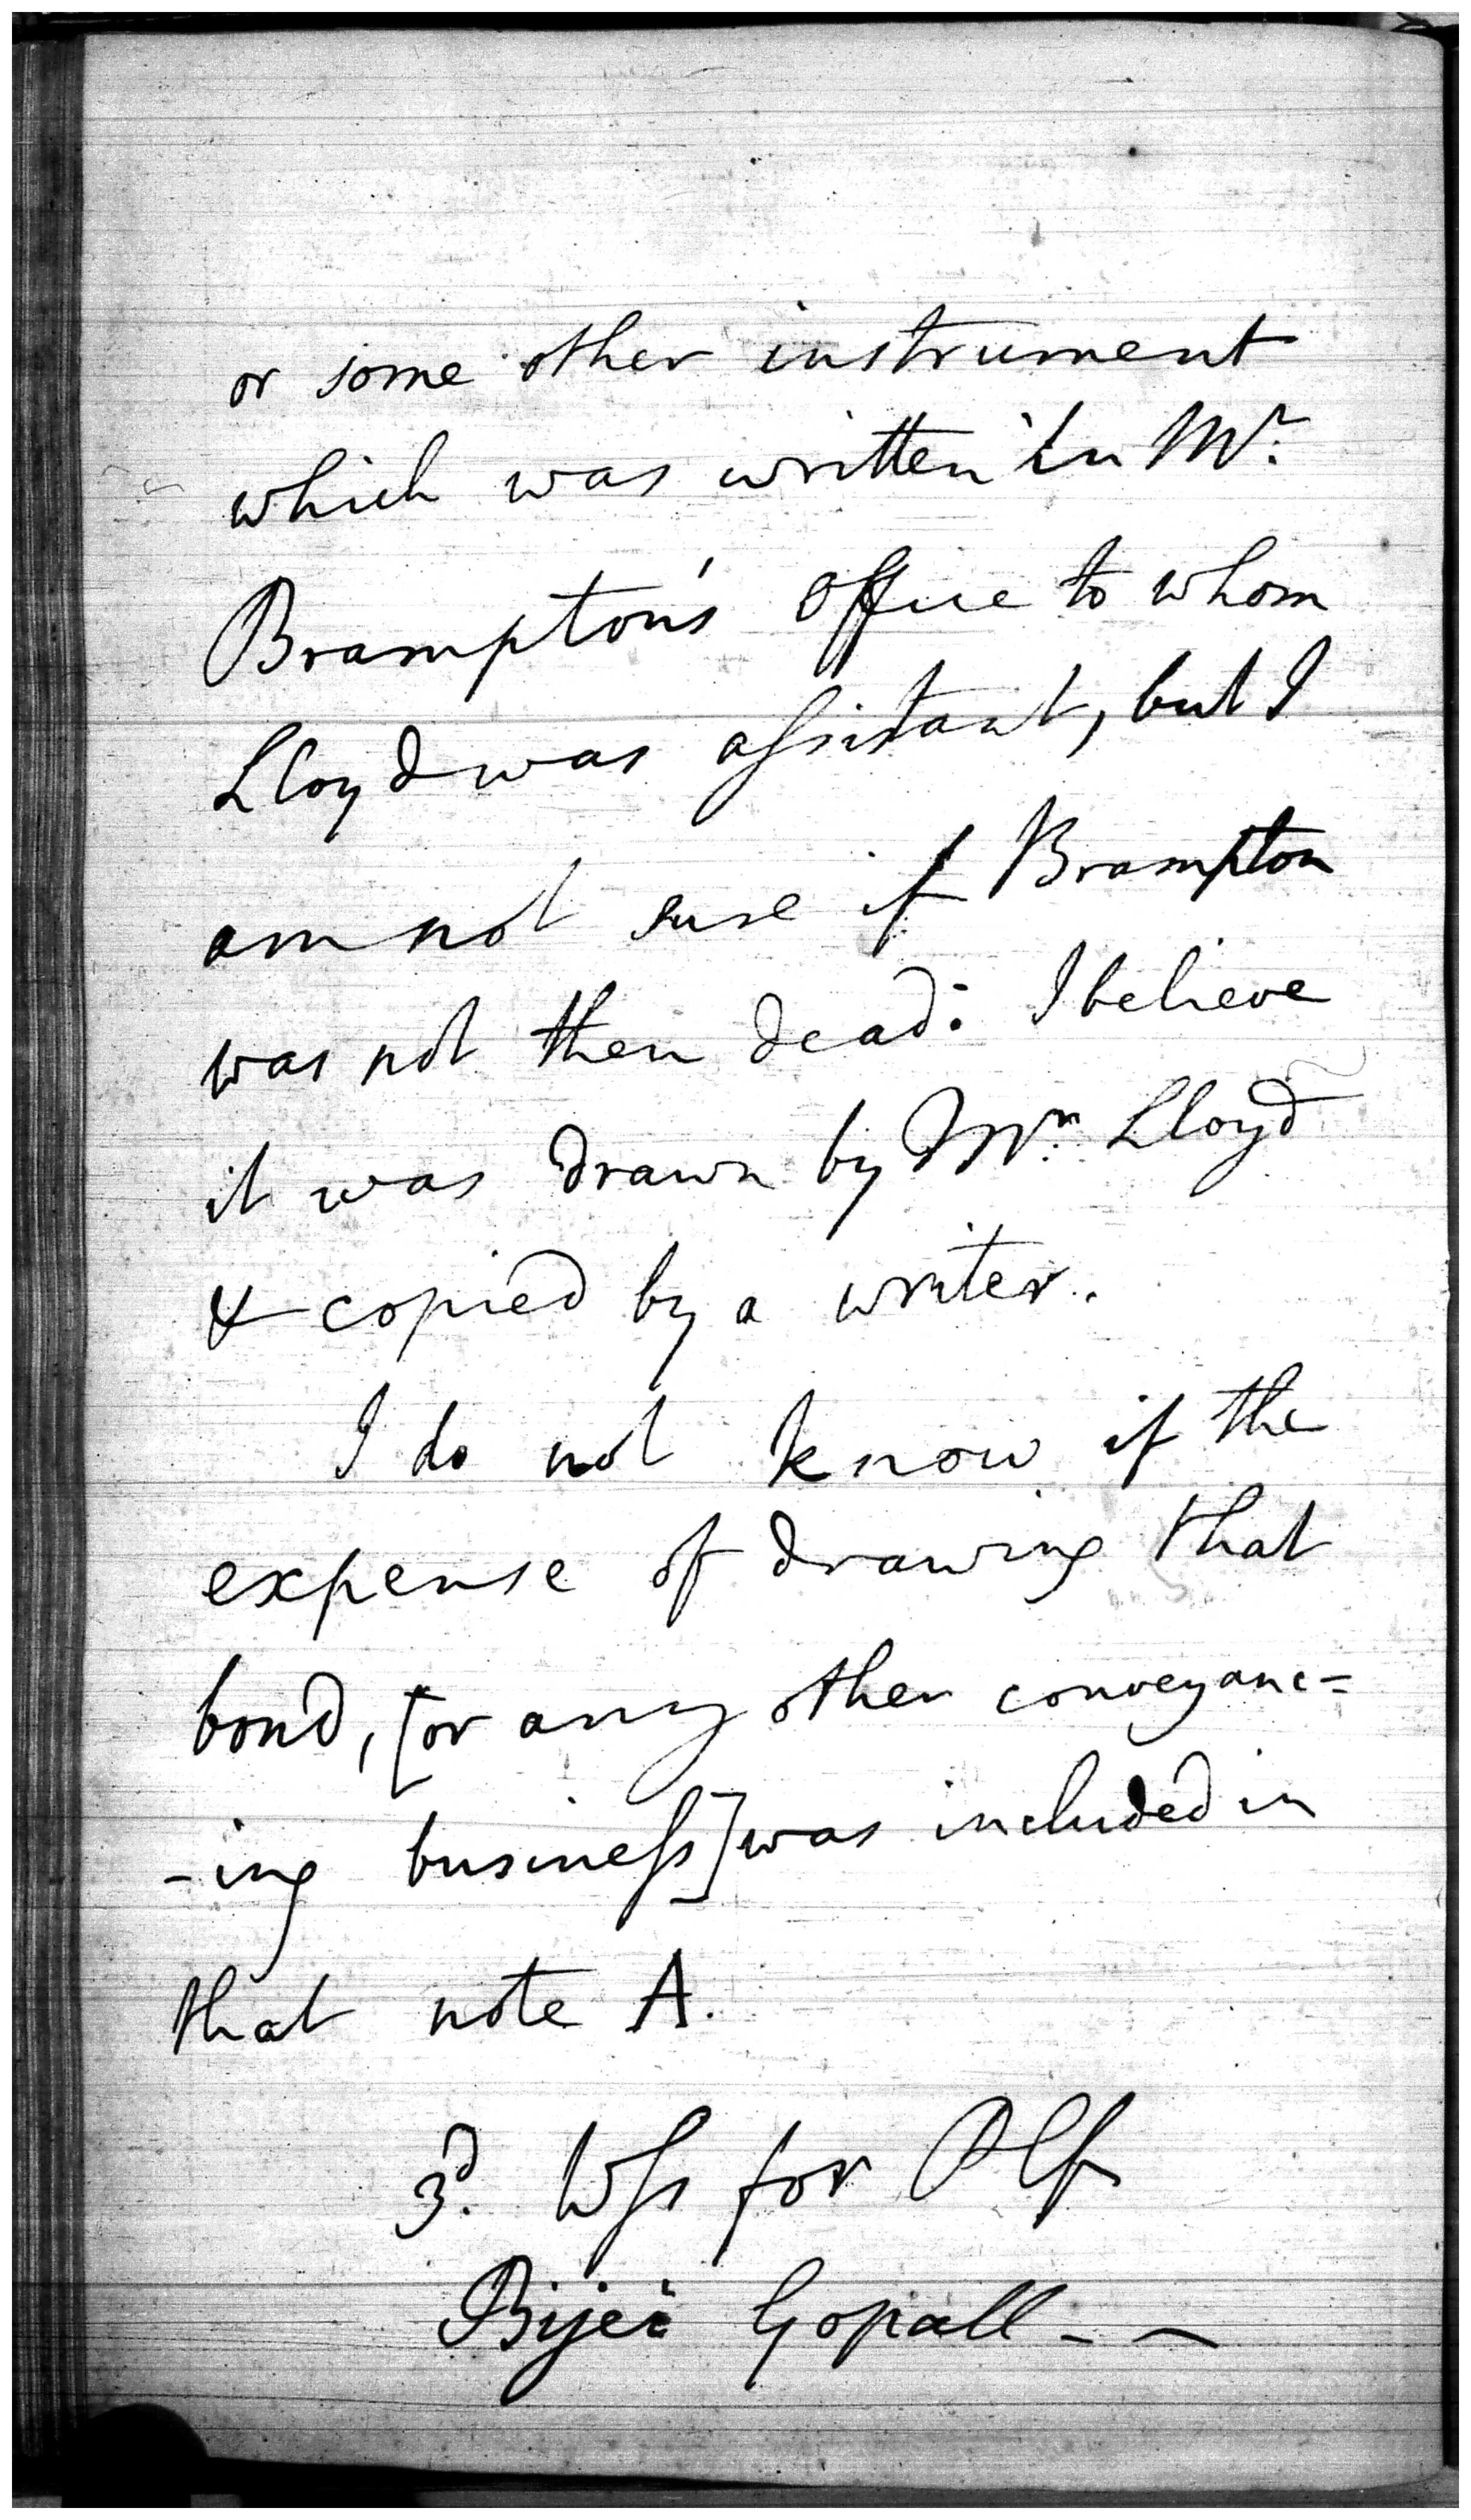 or some other instrument
which was written in Mr.
Brampton's office to whom
Lloyd was assistant, but I
am not sure if Brampton
was not then dead: I believe
it was drawn by Mr. Lloyd
& copied by a writer.
I do not know if the
expense of drawing that
bond, [or any other conveyanc=
-ing business] was included in
that note A.
3d. Wss for Plf
Bijei Gopall - -